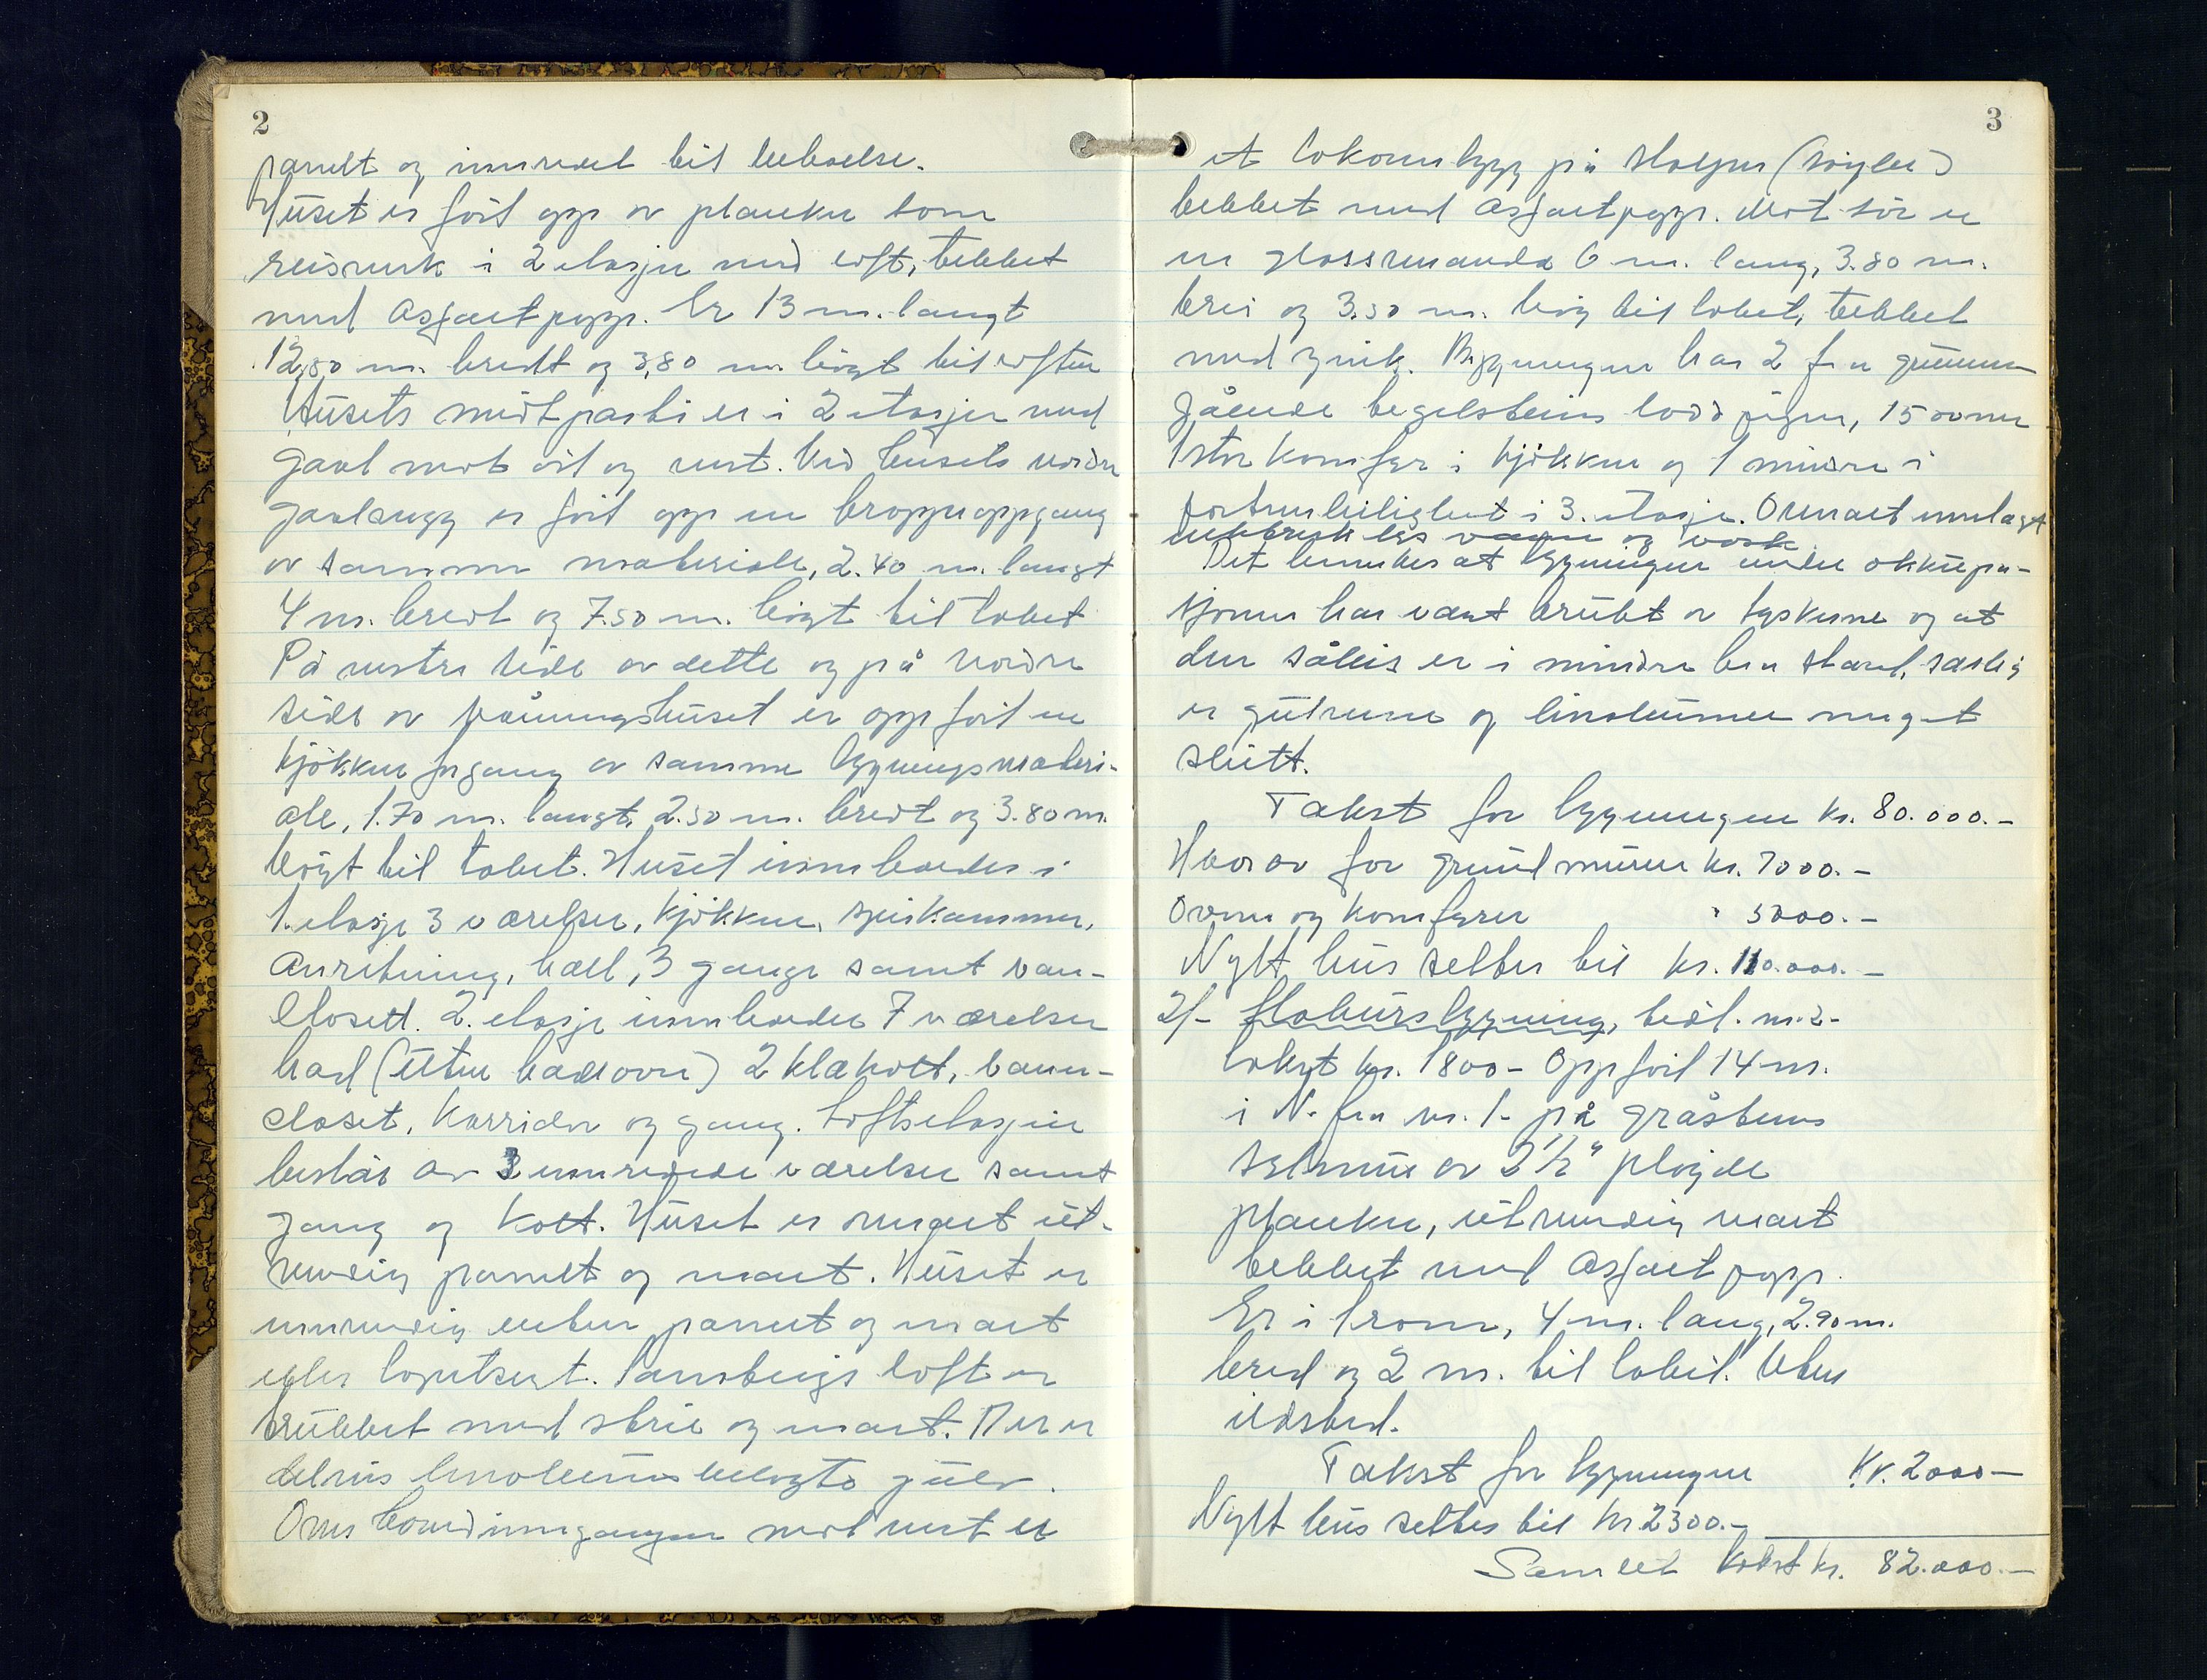 2
panelt og innredet til beboelse.
Huset er ført opp av planker som
reisverk i 2 etasjer med loft, tekket
med asfaltpapp. Er 13 m. langt
12,80 m. bredt og 3,80 m. høgt til loftet
Husets midtparti er i 2 etasjer med
gavl mot øst og vest. Ved husets nordre
gavlvegg er ført opp en trappeoppgang
av samme materiale, 2.40 m. langt
4 m. bredt og 7.50 m. høgt til taket
På vestre side av dette og på nordre
side av våningshuset er oppført en
kjøkken gang av samme bygningsmateri-
ale, 1.70 m. langt, 2.50 m. bredt og 3.80 m.
høgt til taket. Huset inneholder i
1. etasje 3 værelser, kjøkken, spiskammer,
anretning, hall, 3 ganger samt van-
closett. 2. etasje inneholder 7 værelser
bad (uten badeovn) 2 klækott, vann-
closet, korridor og gang. Loftsetasjen
består av 3 innredede værelser samt
gang og kott. Huset er overalt ut-
vendig panelt og malt. Huset er
innvendig enten panelt og malt
eller tapetsert. Samtlige loft er
trukket med strie og malt. Der er
delvis linoleums belagte gulv.
Over hovedinngangen mot vest er
3
et takombygg på stolper (søyler)
tekket med asfaltpapp. Mot sør er
en glassveranda 6 m. lang, 3.80 m.
brei og 3.50 m. høg til taket, tekket
med zink. Bygningen har 2 fra grunnen
gående tegelsteins loddpiper, 15 ovner
1 stor komfyr i kjøkken og 1 mindre i
i 3. etasje. Overalt innlagt
elektrisk lys vann og vask
Det bemerkes at bygningen under okkupa-
sjonen har vært brukt av tyskerne og at
den således er i mindre bra stand, særlig
er gulvene og linoleumen meget
slitt.
Takst for bygningen kr. 80.000.-
Hvorav for grunnmuren kr. 7000.-
Ovner og komfyrer " 5000.-
Nytt hus settes til kr. 110.000.-
2/- Stabursbygning, tidl. nr. 2-
takst kr. 1800- Oppført 14 m.
i N. fra nr. 1- på gråsteins
av 2 1/2" pløyde
planker, utvendig malt
tekket med asfaltpapp.
Er i 1 rom, 4 m. lang, 2.90 m.
bred og 2 m. til taket. Uten
ildsted.
Takst for bygningen Kr. 2000-
Nytt hus settes til kr. 2300.-
Samlet takst kr. 82.000.-